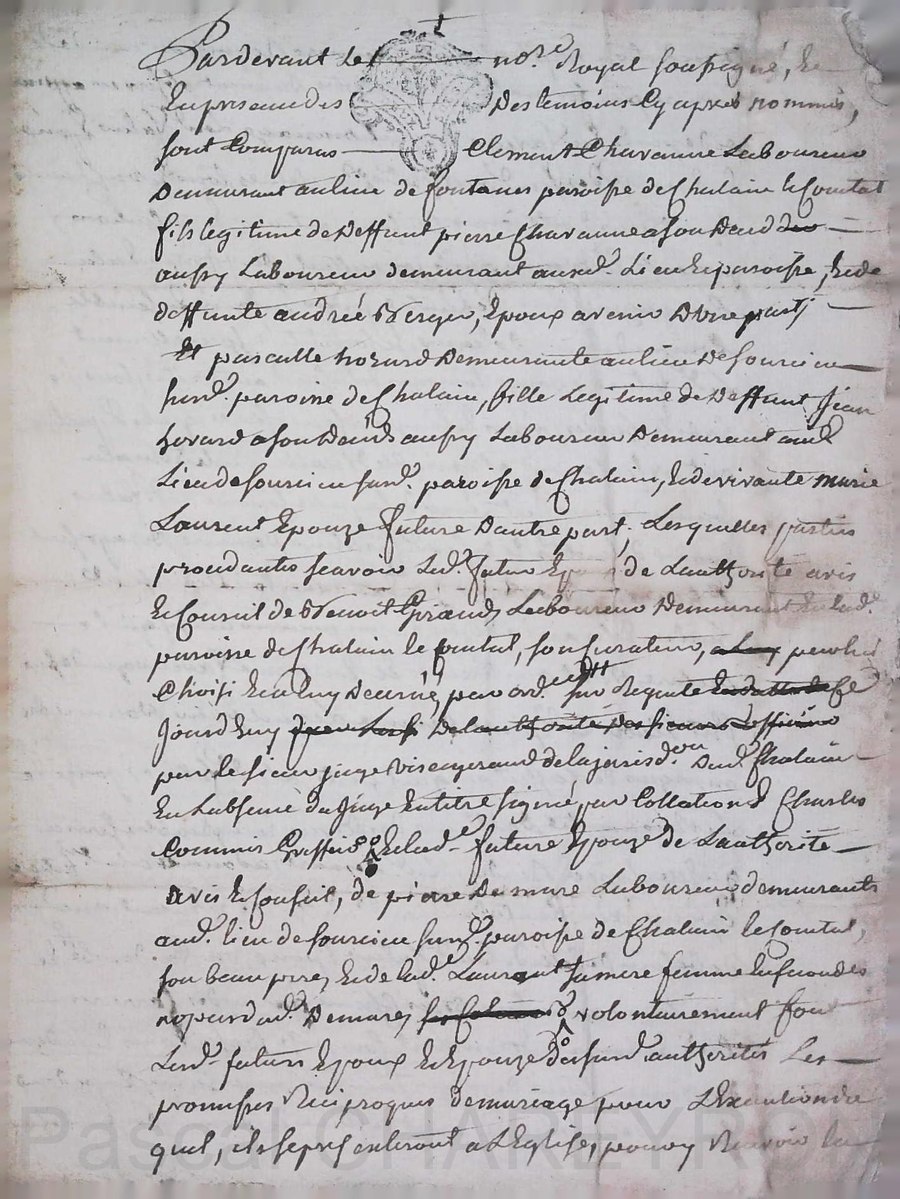 Pardevant Le no.re Royal soussigné, Et
En presence des des temoins Cy apres nommés,
sont Comparus Clement Chavanne Laboureur
Demeurant au lieu de fontanes paroisse de Chalain le Comtal
fils legitime de deffunt pierre Chavanne a son Deced
aussy Laboureur demeurant aud. Lieu Et paroisse, Et de
deffunte andrée Verger, Epoux avenir D'une part
Et pascalle hovard Demeurante au lieu De sourcieu
susd. paroisse de Chalain, fille Legitime de Deffunt Jean
hovard a son Deced aussy Laboureur Demeurant aud
Lieu de sourcieu susd. paroisse de Chalain, Et de vivante marie
Laurent Epouze future D'autre part, Lesquelles parties
procedantes scavoir Led. futur Epoux de L'authorité avis
Et Conseil de Benoit Giraud, Laboureur Demeurant En lad.
paroisse de Chalain le Comtal, son Curateur, par luy
Choisi Et a luy Decerné, par ord. sur Requete Ce
Jourd'huy
par le sieur juge de la jurisd.on Dud. Chalain
En L'absence du Juge En titre signé par Collation Charles
Commis Greffier Et lad. future Epouze de L'authorité
avis Et Conseil, de pierre De mare Laboureur demeurant
aud. lieu de sourcieu susd. paroisse de Chalain le Comtal,
son beau pere, Et de lad. Laurent sa mere femme En secondes
nopces dud. Demare, volontairement font
Lesd. futurs Epoux Et Epouze des susd. authorités Les
promesses Reciproques de mariage pour L'Execution de
quoi, ils se presenteront a L'Eglise, pour y Recevoir la
Pascal CHAREYRON